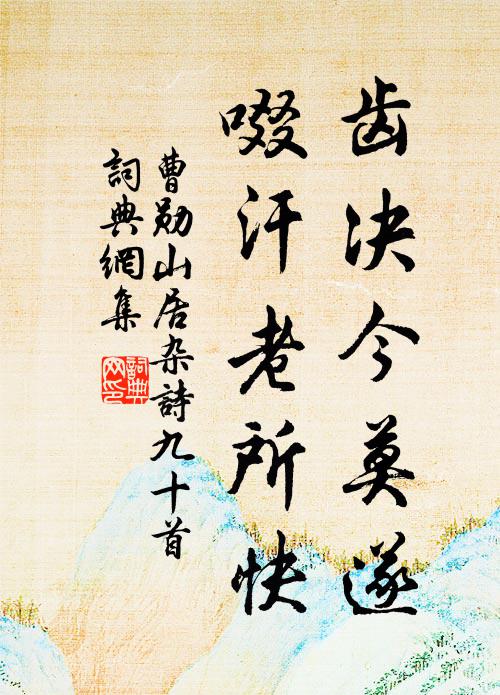 齿决今莫遂
啜汗老所快
曹勋山居杂詩九十首
詞典網集
詞典网印